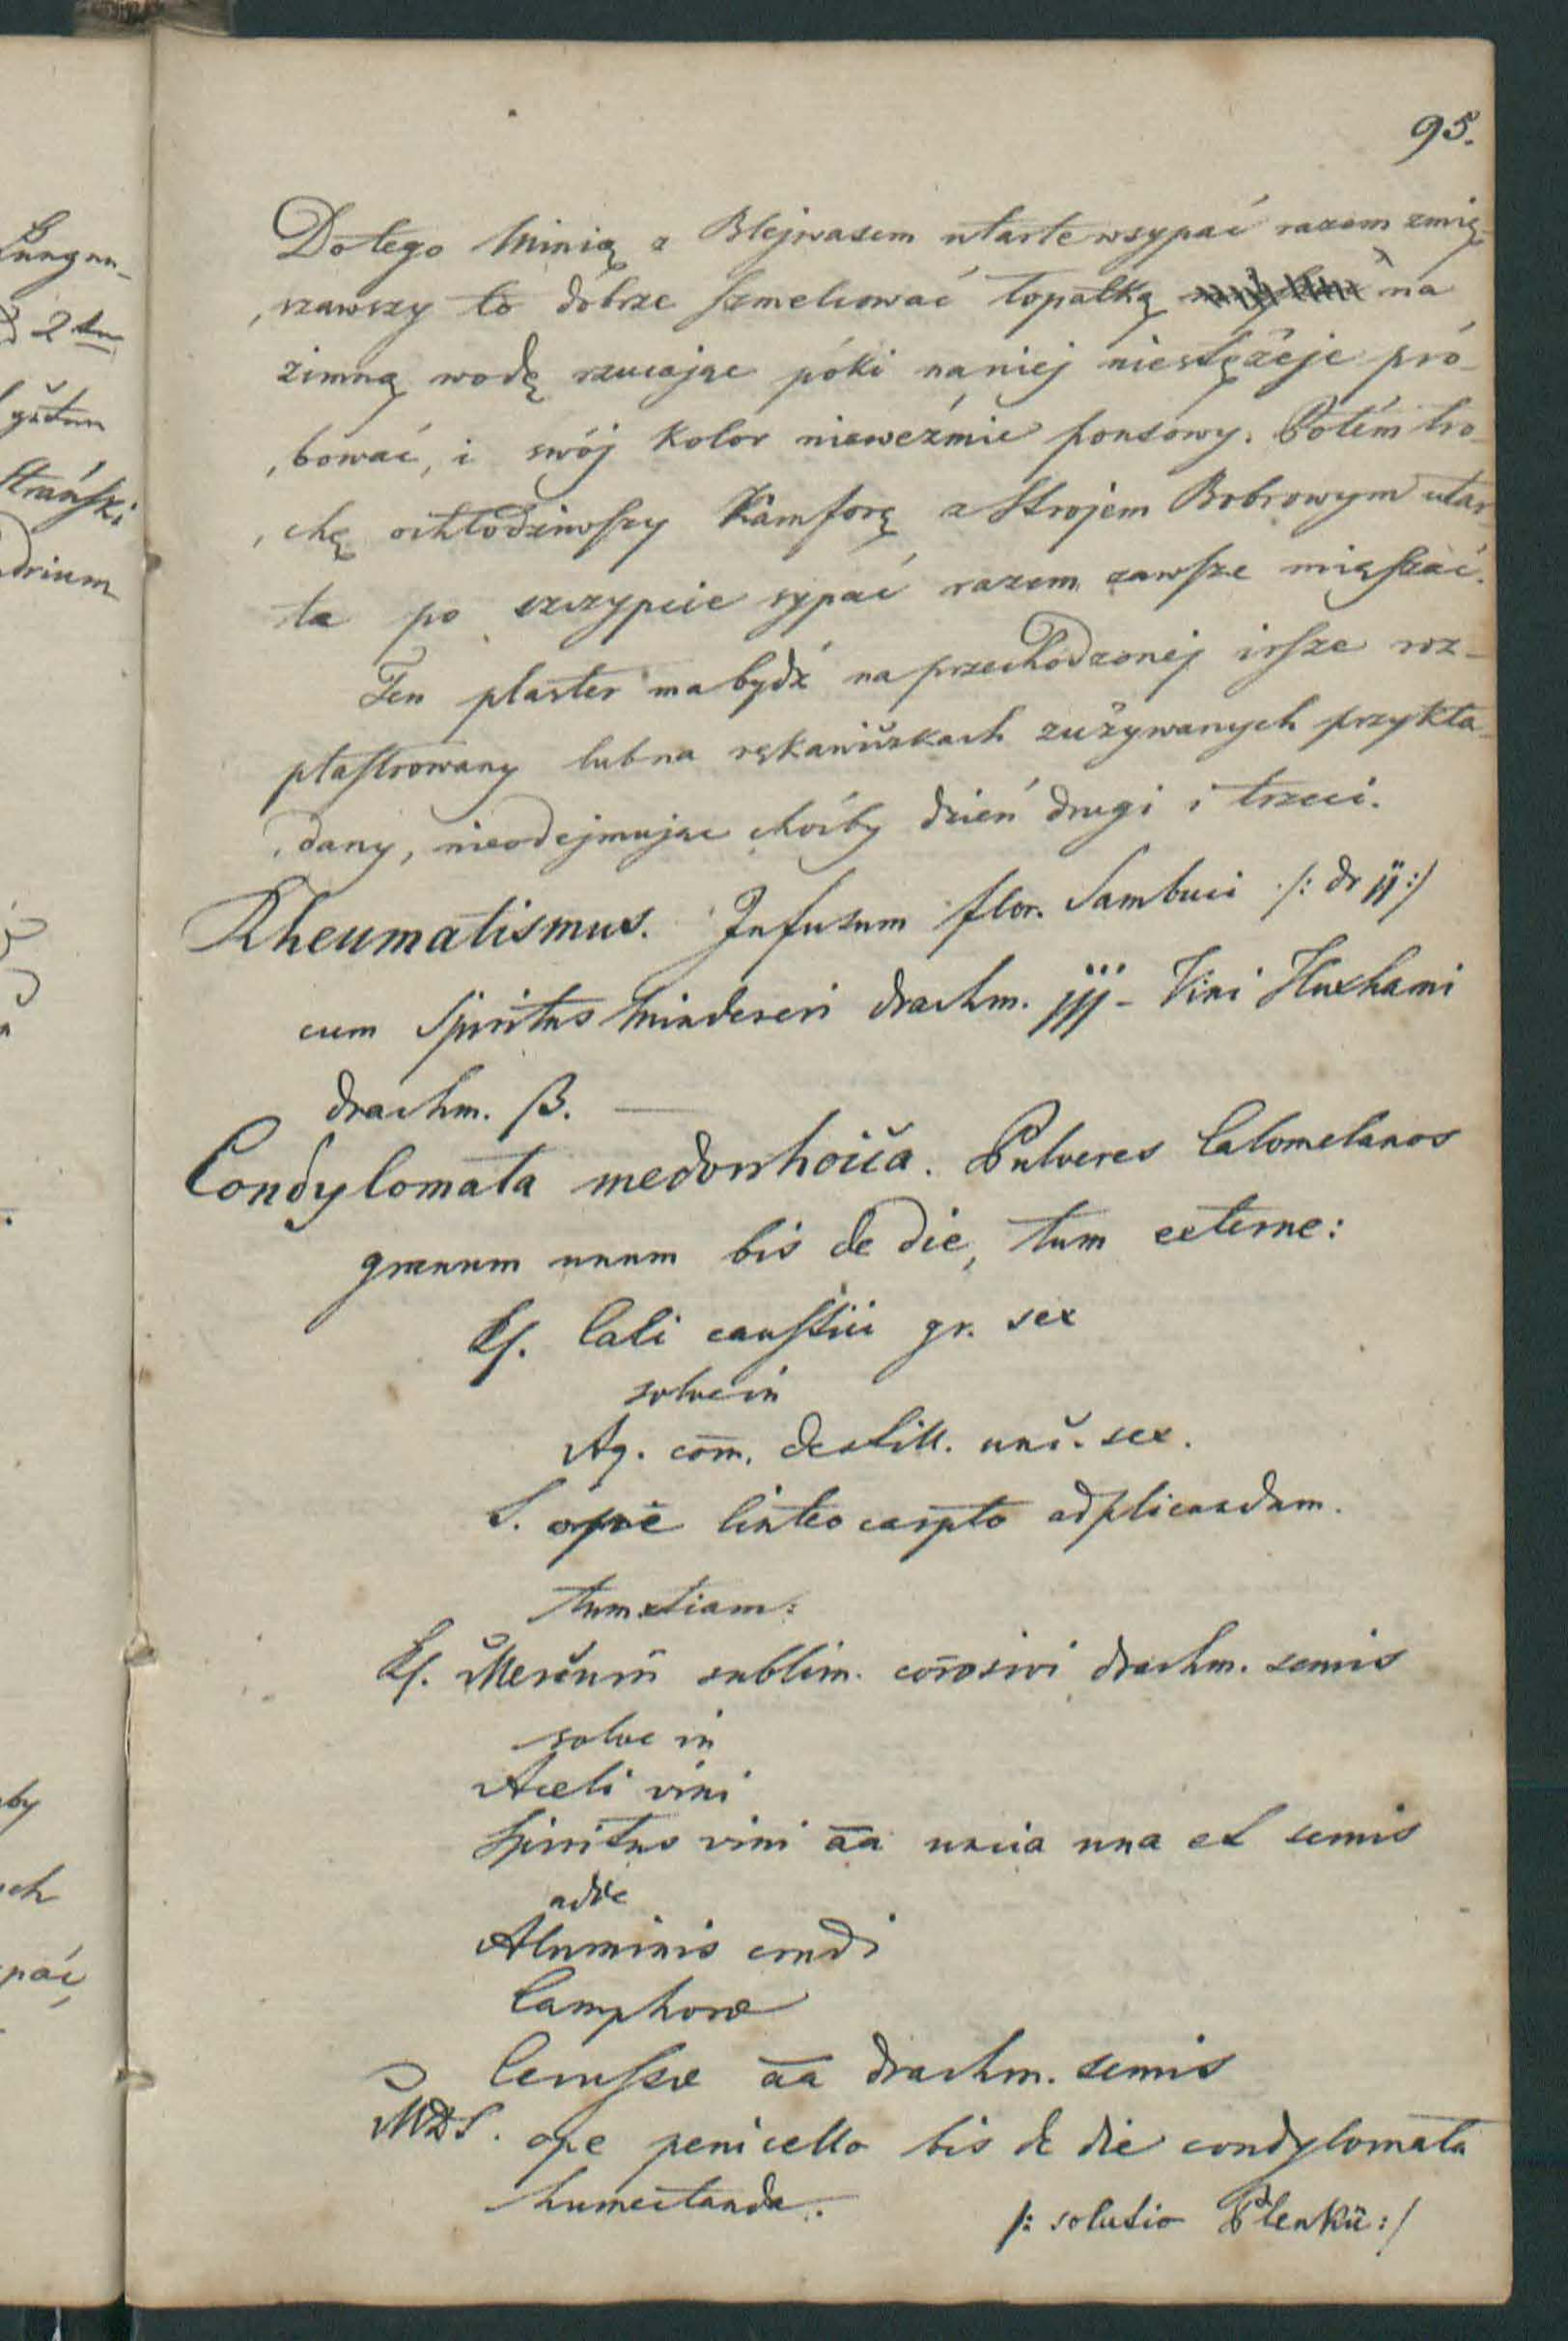 95.
Do tego Minią z Blejwasem utarte wsypać razem zmię-
szawszy to dobrze szmelcować łopatką na
zimną wodę rzucając póki na niej niestężeje pró-
bować, i swój kolor nieweźmie ponsowy. Potém tro-
chę ochłodziwszy Kamforę z Strojem Bobrowym utar-
te po szczypcie sypać razem zawsze mięszać.
Ten plaster ma bydź na przechodzonéj irsze roz-
plastrowany lub na rękawiczkach zużywanych przykła-
dany, nieodejmując choćby dzień drugi i trzeci.
Rheumatismus. Infusum flor. Sambuci /: dr jj :/
cum Spiritus Mindereri drachm. jjj - Vini Huxhami
drachm. ß. —
Condylomata medorrhoica. Pulveres Calomelanos
granum unum bis de die, tum externe:
Rp. Cali caustici gr. sex
solve in
Aq. com. destill. unc. sex.
S. ope linteo carpto adplicandam.
tum etiam:
Rp. Mercurii sublim. corosivi drachm. semis
solve in
Aceti vini
Spiritus vini aa uncia una et semis
adde
Aluminis crudi
Camphoræ
Cerussæ aa drachm. semis
MDS. ope penicello bis de die condylomata
humectanda.
/: solutio Plenkii :/
Lungun-
2
Strański
drium
by
ych
pać